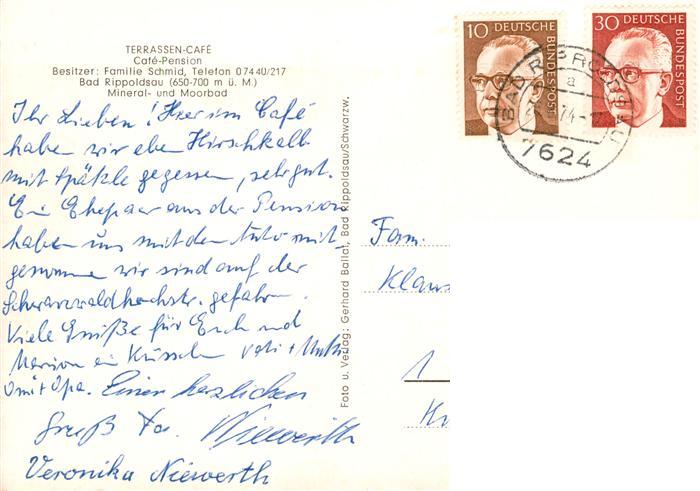 TERRASSEN-CAFÉ
Café-Pension
Besitzer: Familie Schmid, Telefon 07440/217
Bad Rippoldsau (650-700 m ü. M.)
Mineral- und Moorbad
Ihr Lieben! Hier im Café
haben wir eben Hirschkalb
mit Spätzle gegessen, sehr gut.
Ein Ehepaar aus der Pension
haben uns mit dem Auto mit-
genommen wir sind auf der
Schwarzwaldhochstr. gefahren.
Viele Grüße für Euch und
Marion ein Küsschen Vati + Mutti
Omi + Opa. Einen herzlichen
Gruß Fa. Niewerth
Veronika Niewerth
Foto u. Verlag: Gerhard Ballat, Bad Rippoldsau/Schwarzw.
10 DEUTSCHE BUNDESPOST
30 DEUTSCHE BUNDESPOST
BAD RIPPOLDSAU
a
74
7624
Fam.
Klaus
1